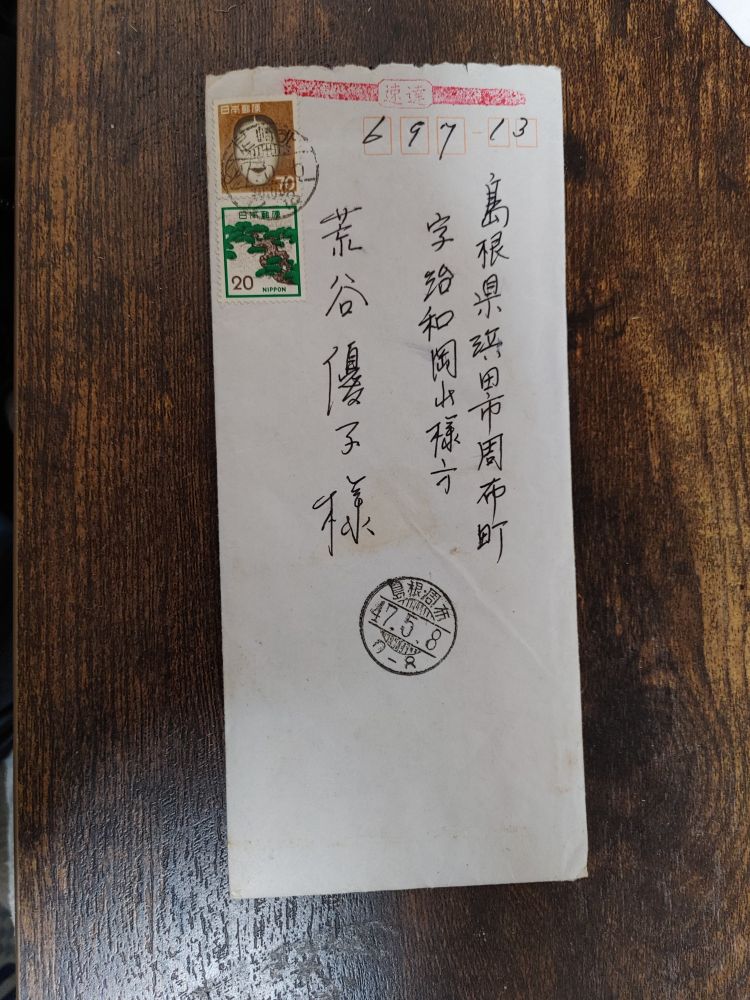 速達
697-13
島根県浜田市周布町
字治和岡北様方
荒谷優子様
日本郵便
70
日本郵便
20
NIPPON
島根周布
47.5.8
0-8